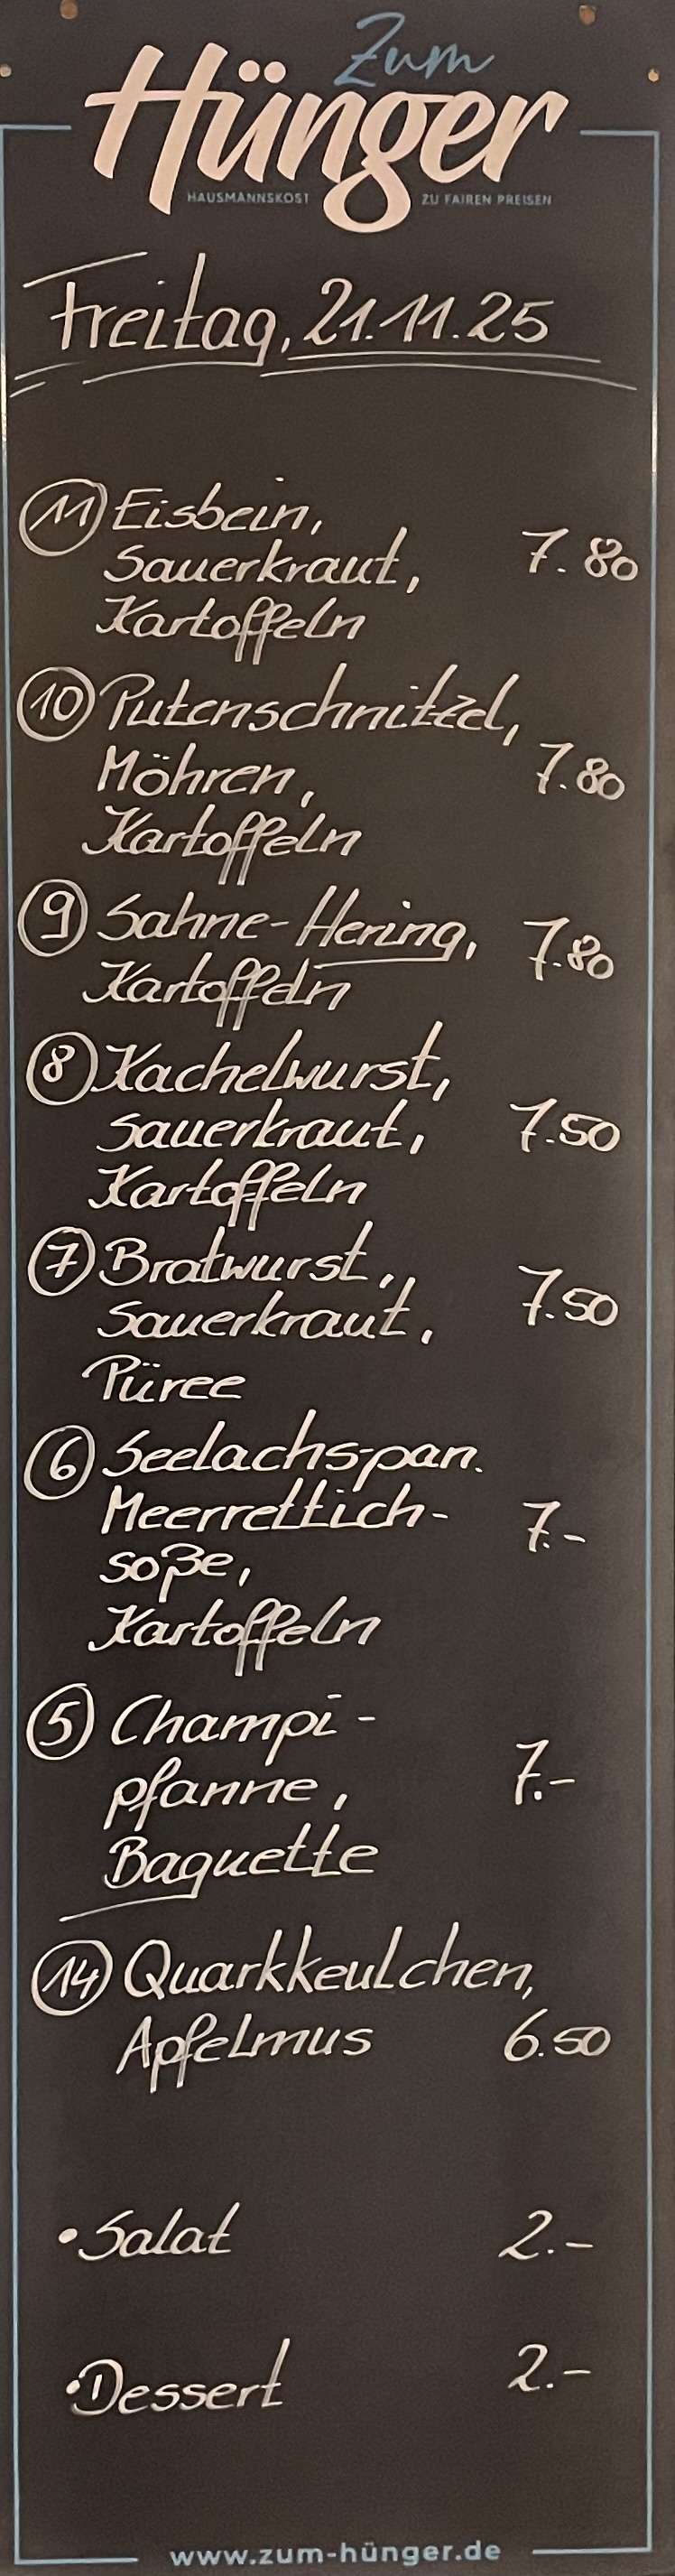 Zum
Hünger
HAUSMANNSKOST ZU FAIREN PREISEN
Freitag, 21.11.25
11 Eisbein,
Sauerkraut, 7.80
Kartoffeln
10 Putenschnitzel,
Möhren, 7.80
Kartoffeln
9 Sahne-Hering, 7.80
Kartoffeln
8 Kachelwurst,
Sauerkraut, 7.50
Kartoffeln
7 Bratwurst,
Sauerkraut, 7.50
Püree
6 Seelachs-pan.
Meerrettich- 7.-
soße,
Kartoffeln
5 Champi-
pfanne, 7.-
Baguette
14 Quarkkeulchen,
Apfelmus 6.50
• Salat 2.-
• Dessert 2.-
www.zum-hünger.de